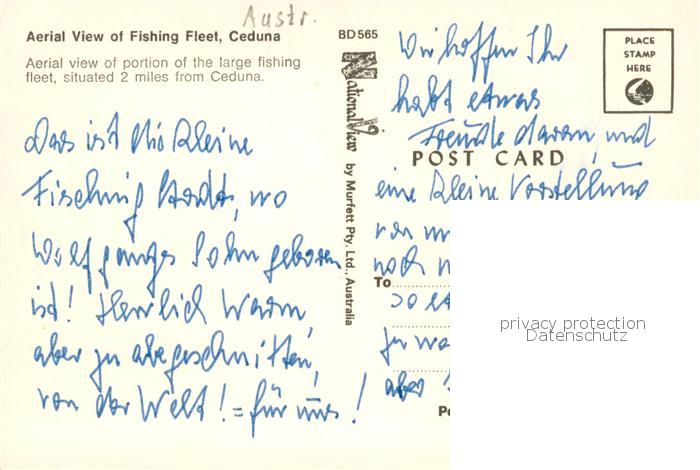 Austr.
Aerial View of Fishing Fleet, Ceduna
Aerial view of portion of the large fishing
fleet, situated 2 miles from Ceduna.
Das ist die kleine
Fisching Stadt, wo
Wolfgangs Sohn geboren
ist! Herrlich warm,
aber zu abgeschnitten,
von der Welt! = für uns!
BD 565
National View by Murfett Pty. Ltd., Australia
Wir hoffen Ihr
habt etwas
Freude daran, und
POST CARD
eine kleine Vorstellung
von
noch
To
so
zu
aber
PLACE
STAMP
HERE
privacy protection
Datenschutz